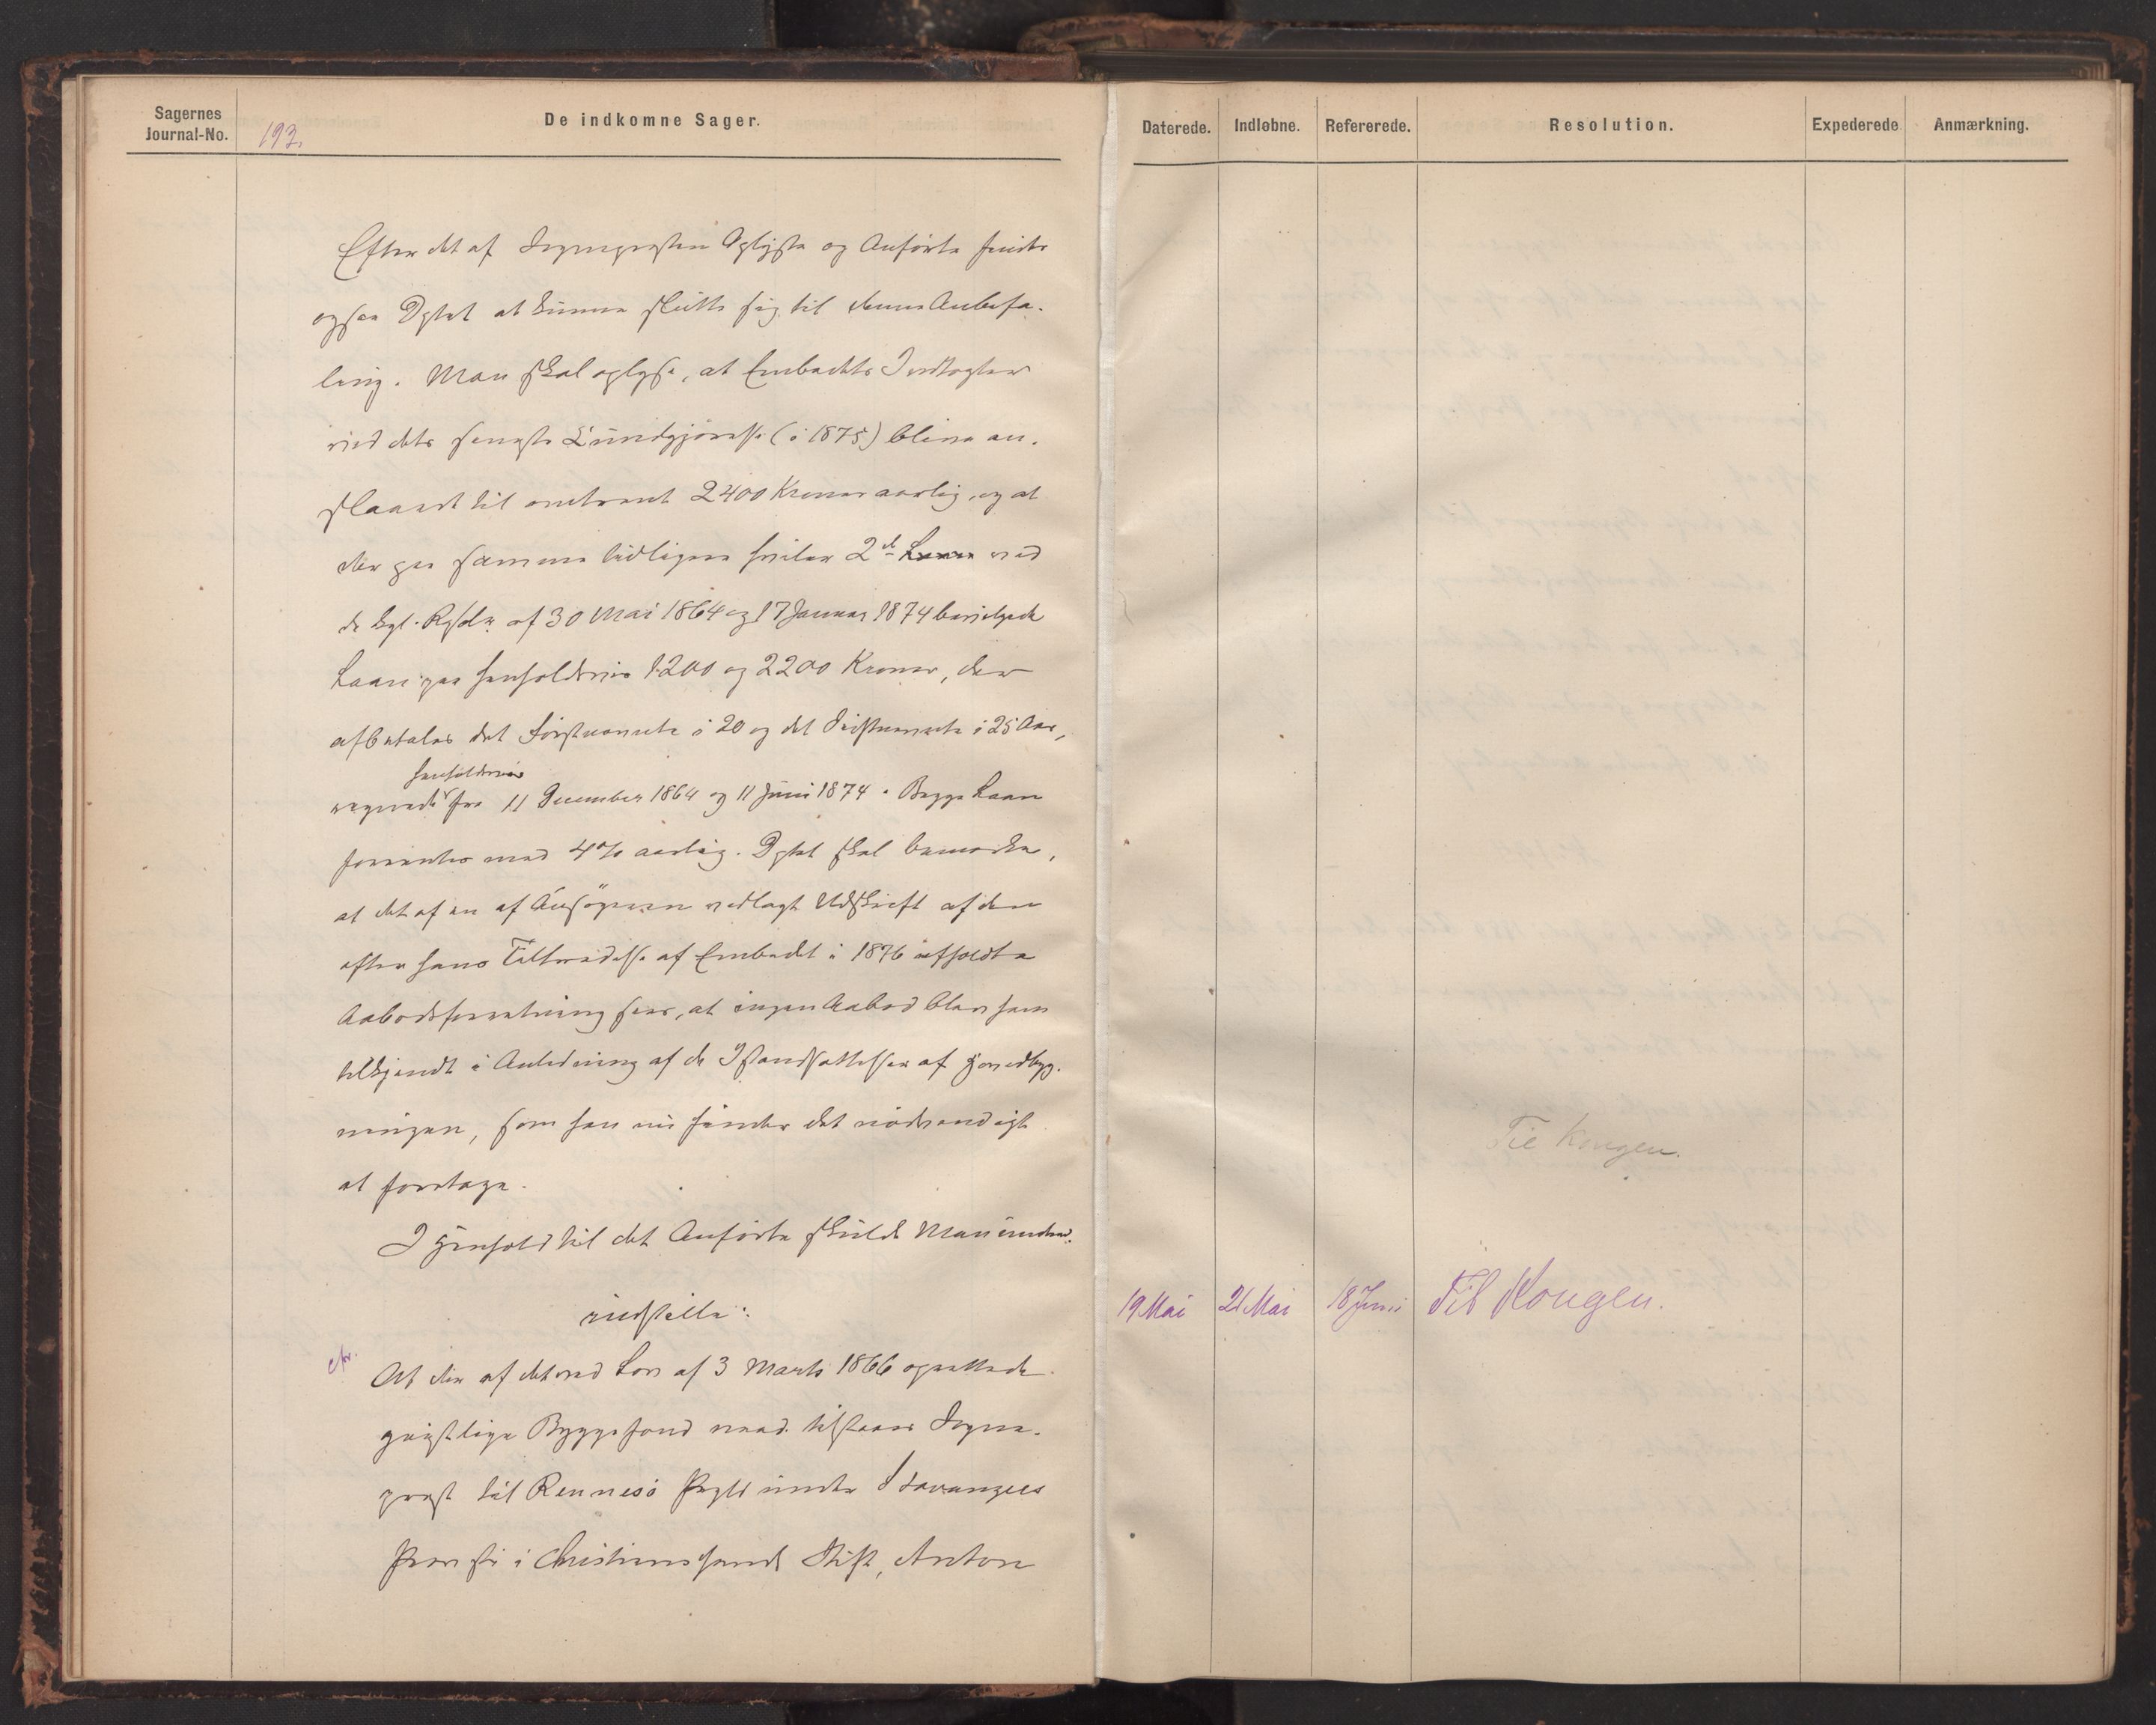 Sagernes
Journal-No.
193.
De indkomne Sager.
Efter det af Sognepresten Oplyste og Anførte finder
ogsaa Dptet at kunne slutte sig til denne Anbefa-
ling. Man skal oplyse, at Embedets Indtægter
ved dets seneste Kundgjørelse (i 1875) bleve an-
slaaede til omtrent 2400 Kroner aarlig, og at
der paa samme tidligere hviler 2de Laan ved
de kgl. Resoln af 30 Mai 1864 og 17 Januar 1874 bevilgede
Laan paa henholdsvis 1200 og 2200 Kroner, der
afbetales det førstnævnte i 20 og det sidstnævnte i 25 Aar,
henholdsvis
regnede fra 11 December 1864 og 11 Juni 1874. Begge Laan
forrentes med 4% aarlig. Dptet skal bemærke,
at det af en af Ansøgeren vedlagt Udskrift af den
efter hans Tiltrædelse af Embedet i 1876 afholdte
Aabodsforretning sees, at ingen Aabod blev ham
tilkjendt i Anledning af de Istandsættelser af Hovedbyg-
ningen, som han nu finder det nødvendigt
at foretage.
I Henhold til det Anførte skulde Man underd.
indstille:
At der af det ved Lov af 3 Marts 1866 oprettede
geistlige Byggefond maa tilstaaes Sogne-
prest til Rennesø Prgld under Stavangers
Provsti i Christianssands Stift, Anton
Daterede.
Indløbne.
Refererede.
Resolution.
Expederede
Anmærkning.
Til Kongen.
19 Mai
21 Mai
18 Juni
Til Kongen.